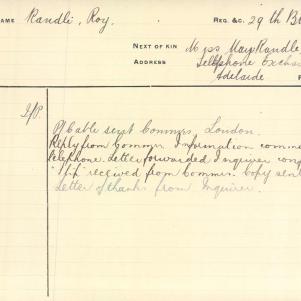 NAME Randle, Roy. REG &c. 29th B
NEXT OF KIN Miss May Randle
ADDRESS Telephone Exchan
Adelaide
Cable sent Commrs, London.
Reply from Commr. Information comm
telephone. Letter forwarded Inquirer
received from Commr. Copy sent
Letter of thanks from Inquirer.